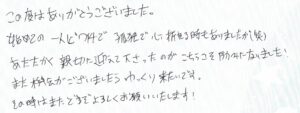 この度はありがとうございました。
初めての一人と1人で 孤独で心折れる時もありましたが(笑)
あたたかく 親切に迎えて下さったのがこちらこそ助かっなりました!
また機会がございましたらゆっくり来たいです。
その時はまたどうぞよろしくお願いいたします!